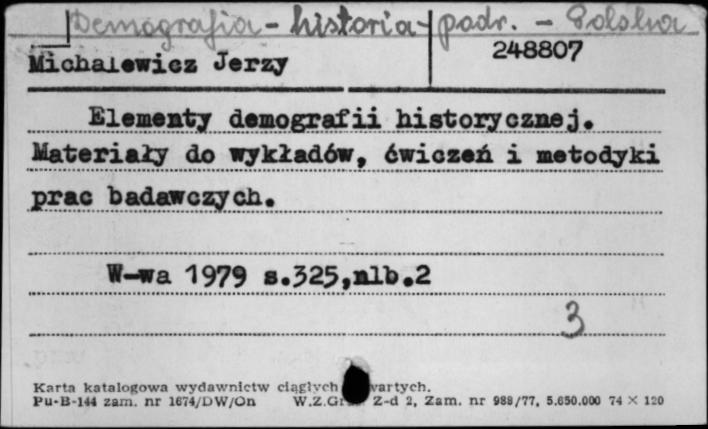 Demografia - historia - podr. - Polska
248807
Michalewicz Jerzy
Elementy demografii historycznej.
Materiały do wykładów, ćwiczeń i metodyki
prac badawczych.
W-wa 1979 s.325,nlb.2
3
Karta katalogowa wydawnictw ciągłych wartych.
Pu-B-144 zam. nr 1674/DW/On W.Z.Gr Z-d 2, Zam. nr 988/77, 5.650.000 74 × 120